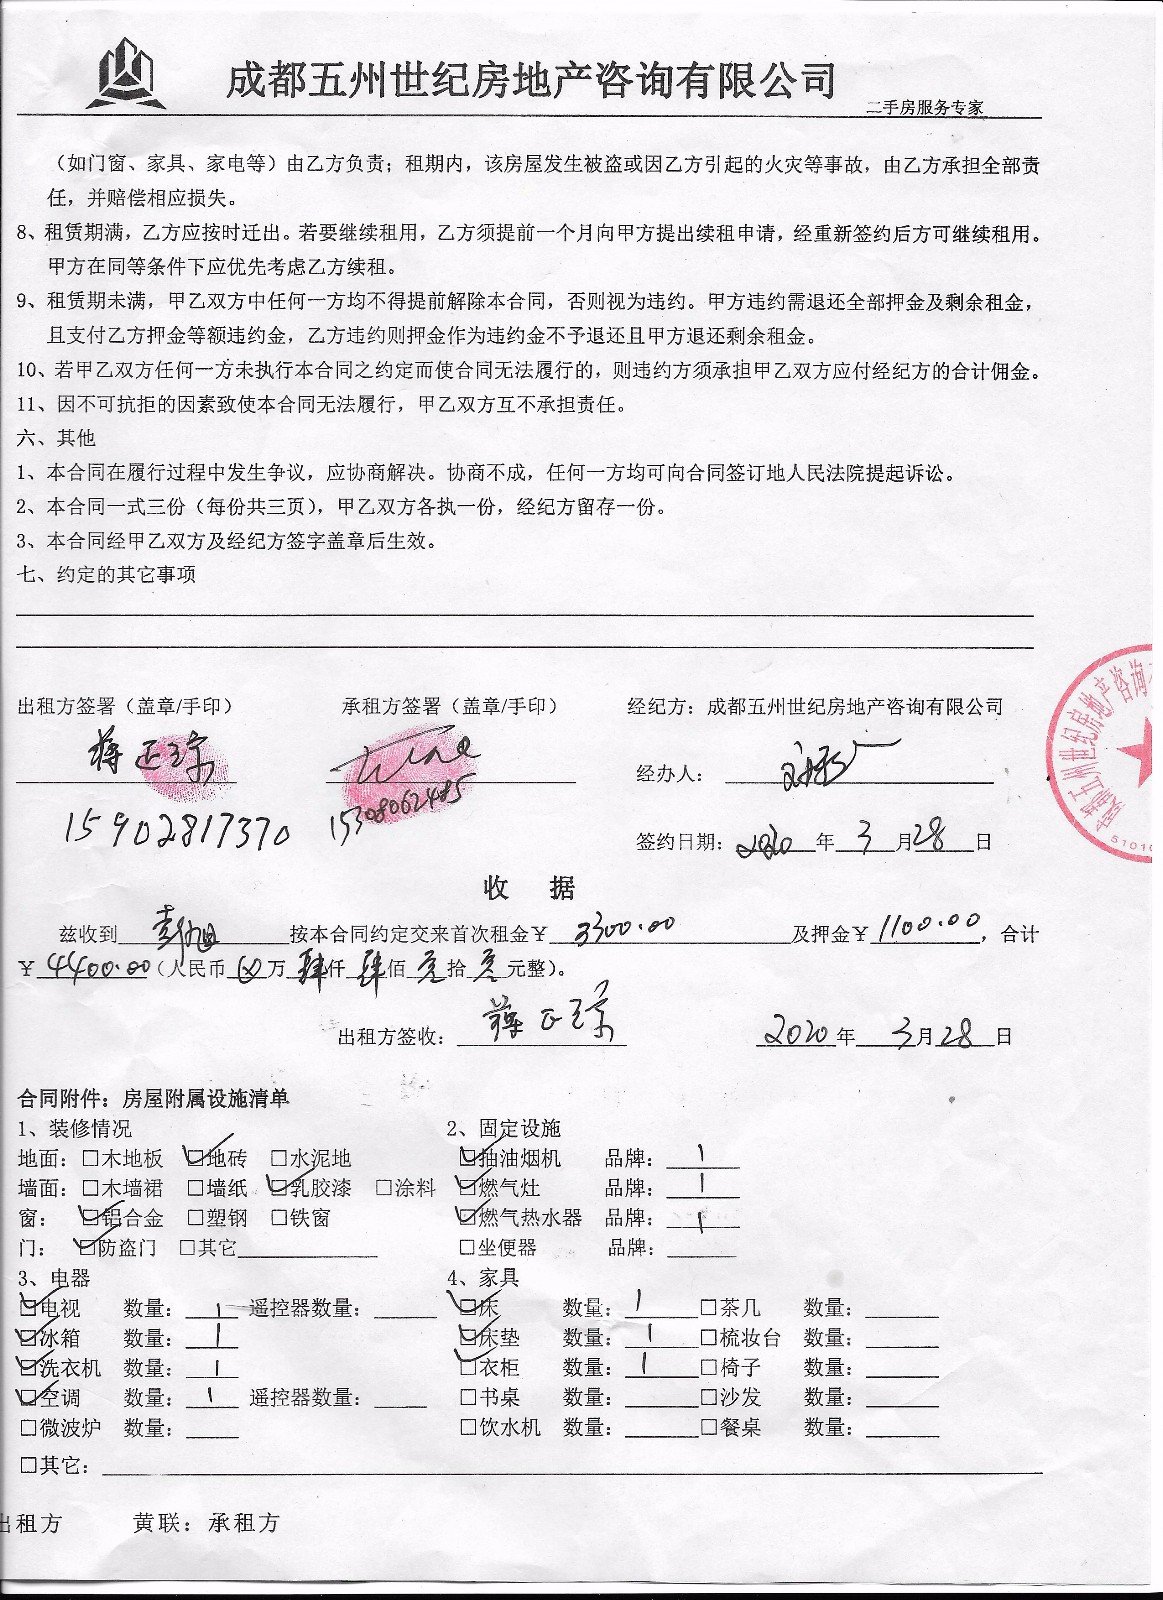 成都五州世纪房地产咨询有限公司
二手房服务专家
（如门窗、家具、家电等）由乙方负责；租期内，该房屋发生被盗或因乙方引起的火灾等事故，由乙方承担全部责
任，并赔偿相应损失。
8、租赁期满，乙方应按时迁出。若要继续租用，乙方须提前一个月向甲方提出续租申请，经重新签约后方可继续租用。
甲方在同等条件下应优先考虑乙方续租。
9、租赁期未满，甲乙双方中任何一方均不得提前解除本合同，否则视为违约。甲方违约需退还全部押金及剩余租金，
且支付乙方押金等额违约金，乙方违约则押金作为违约金不予退还且甲方退还剩余租金。
10、若甲乙双方任何一方未执行本合同之约定而使合同无法履行的，则违约方须承担甲乙双方应付经纪方的合计佣金。
11、因不可抗拒的因素致使本合同无法履行，甲乙双方互不承担责任。
六、其他
1、本合同在履行过程中发生争议，应协商解决。协商不成，任何一方均可向合同签订地人民法院提起诉讼。
2、本合同一式三份（每份共三页），甲乙双方各执一份，经纪方留存一份。
3、本合同经甲乙双方及经纪方签字盖章后生效。
七、约定的其它事项
出租方签署（盖章/手印） 承租方签署（盖章/手印） 经纪方：成都五州世纪房地产咨询有限公司
蒋正琼
经办人：
15902817370 15308062485
签约日期：2020年3月28日
成都五州世纪房地产咨询
51010
收 据
兹收到 彭旭 按本合同约定交来首次租金￥3300.00 及押金￥1100.00，合计
￥4400.00（人民币 万肆仟肆佰零拾零元整）。
出租方签收：蒋正琼 2020年3月28日
合同附件：房屋附属设施清单
1、装修情况 2、固定设施
地面：□木地板 ☑地砖 □水泥地 ☑抽油烟机 品牌：1
墙面：□木墙裙 □墙纸 ☑乳胶漆 □涂料 ☑燃气灶 品牌：1
窗： ☑铝合金 □塑钢 □铁窗 ☑燃气热水器 品牌：1
门： ☑防盗门 □其它 □坐便器 品牌：
3、电器 4、家具
☑电视 数量：1 遥控器数量： ☑床 数量：1 □茶几 数量：
☑冰箱 数量：1 ☑床垫 数量：1 □梳妆台 数量：
☑洗衣机 数量：1 ☑衣柜 数量：1 □椅子 数量：
☑空调 数量：1 遥控器数量： □书桌 数量： □沙发 数量：
□微波炉 数量： □饮水机 数量： □餐桌 数量：
□其它：
出租方 黄联：承租方